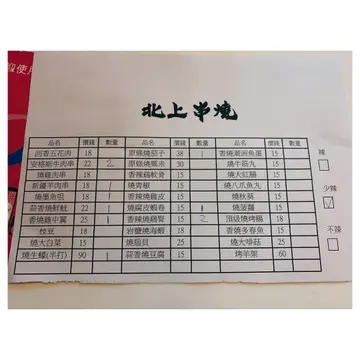 北上串燒
品名 價錢 數量 品名 價錢 數量 品名 價錢 數量
回香五花肉 18 原條燒茄子 38 1 香燒潮洲魚蛋 15
安格斯牛肉串 22 2 原條燒粟米 30 燒牛筋丸 15
燒雞肉串 18 香辣雞軟骨 15 燒大紅腸 15
新疆羊肉串 22 1 燒青椒 15 1 燒八爪魚丸 15
燒墨魚咀 18 香辣燒雞皮 15 燒秋葵 15
蒜香燒鮮魷 22 1 燒腐皮蝦卷 15 1 燒菠蘿 15
香燒雞中翼 25 1 香辣燒雞腎 15 2 頂級燒烤腸 18
枝豆 18 岩鹽燒海蝦 18 香燒多春魚 15
燒大白菜 15 燒扇貝 25 燒大啡菇 25
燒生蠔(半打) 90 1 蒜香燒豆腐 15 烤羊架 60
辣
少辣
不辣